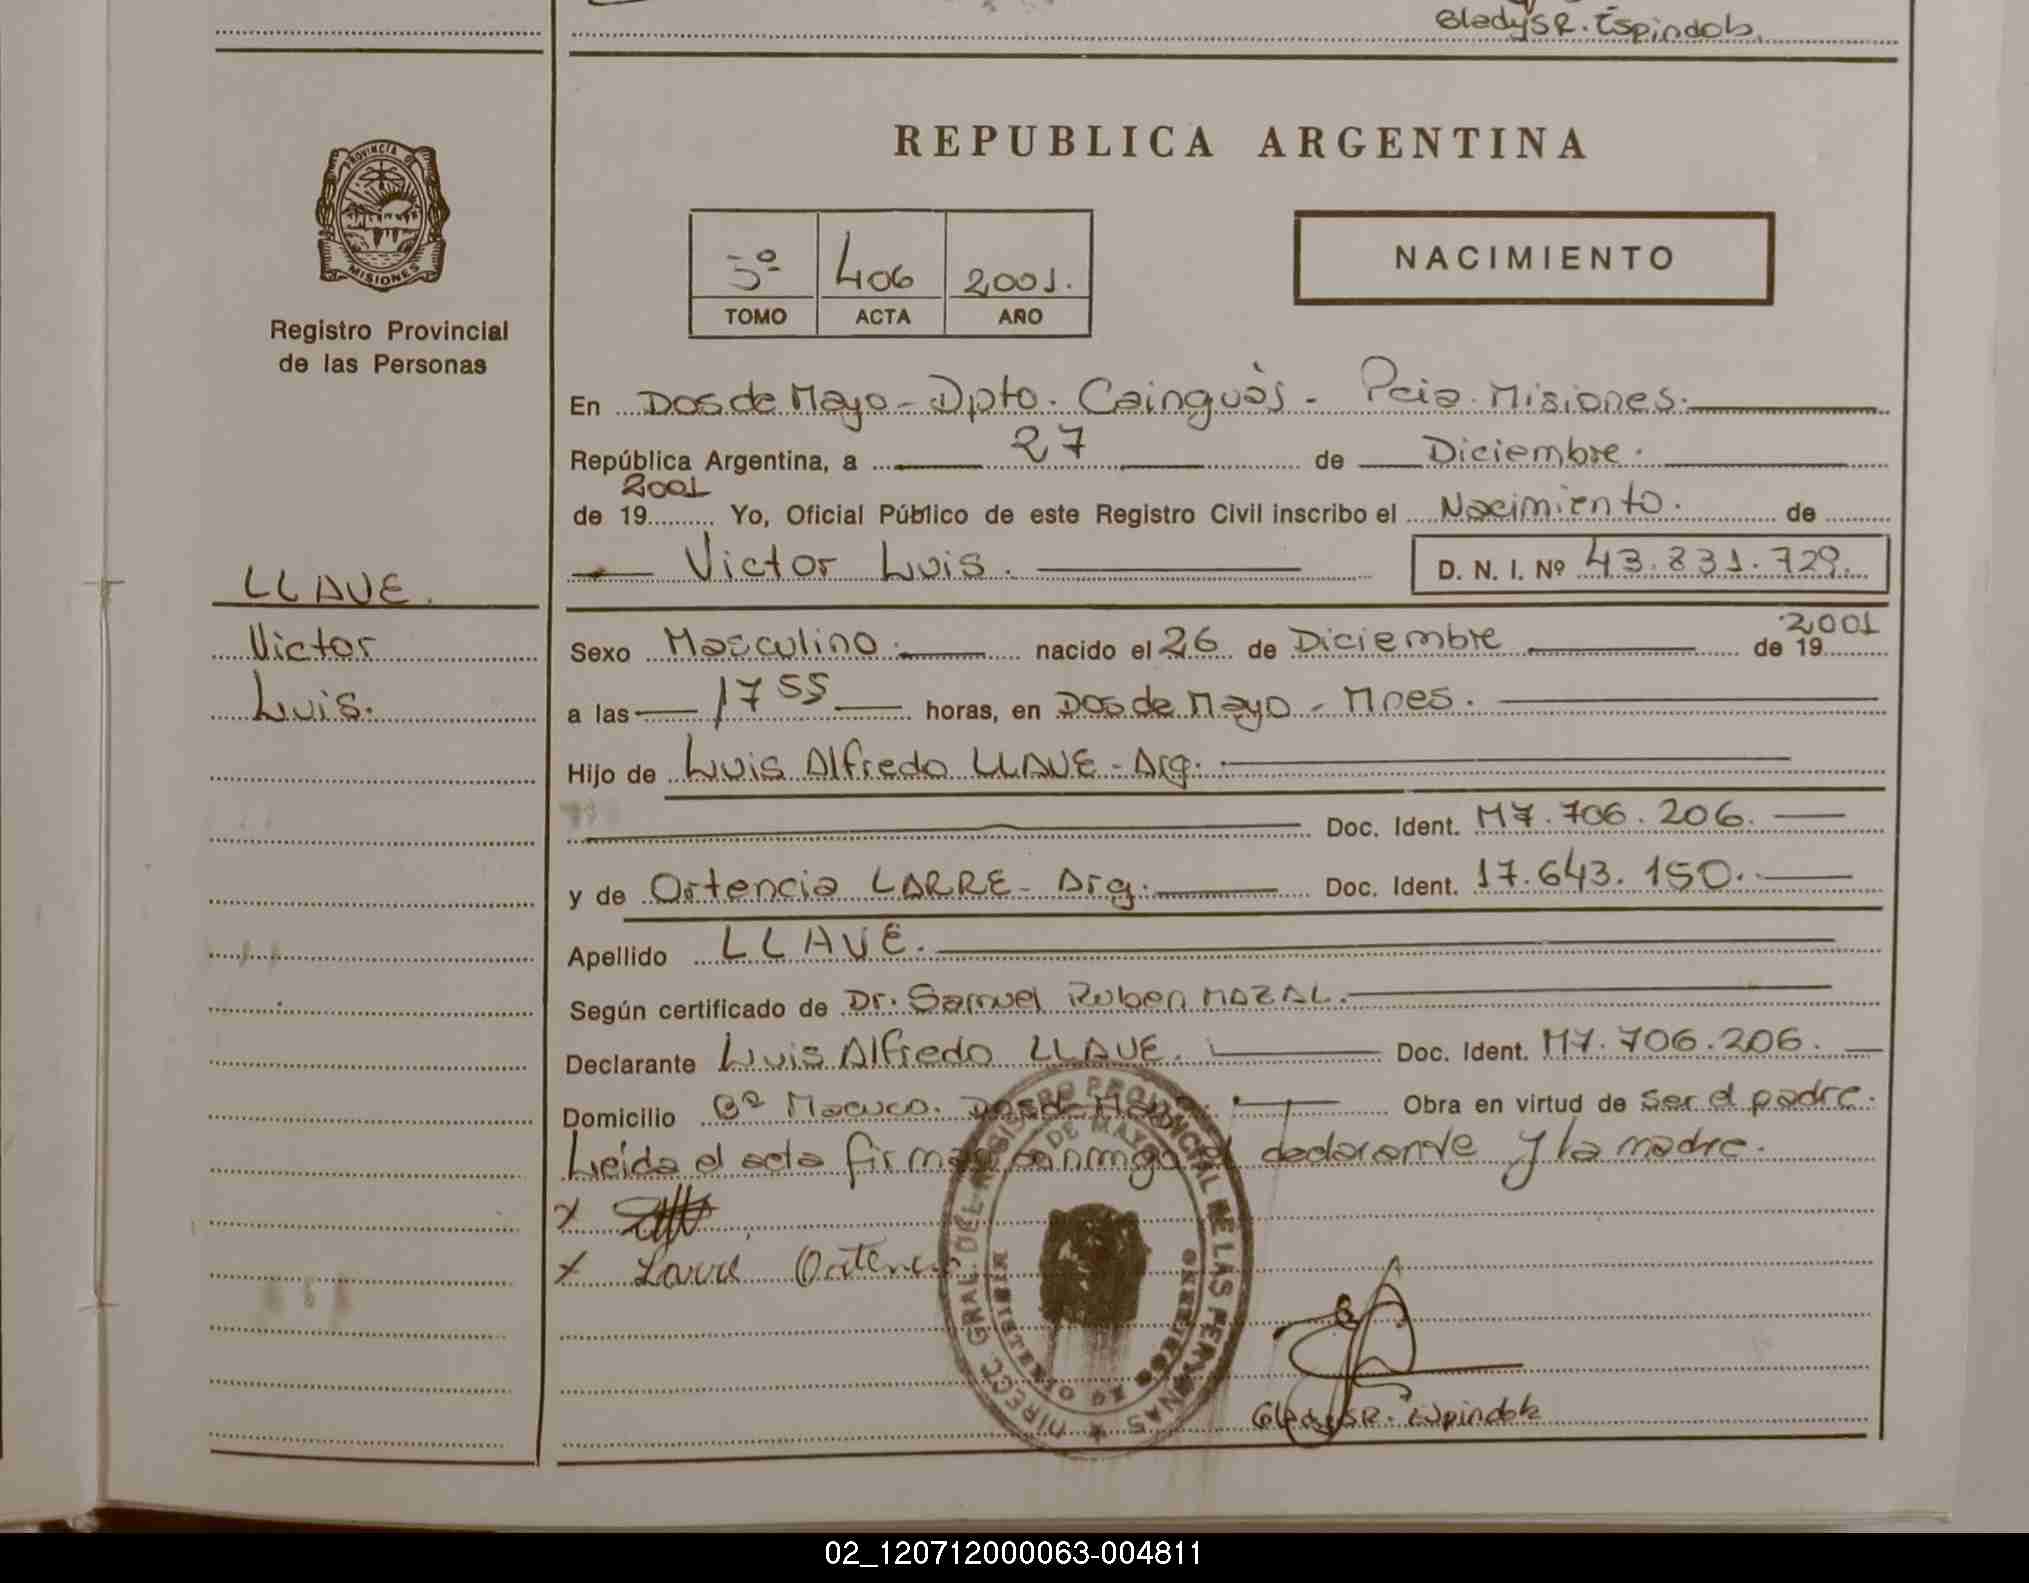 Gladys R. Espindola
PROVINCIA DE
MISIONES
Registro Provincial
de las Personas
REPUBLICA ARGENTINA
3º 406 2001.
TOMO ACTA AÑO
NACIMIENTO
En Dos de Mayo - Dpto. Cainguás - Pcia. Misiones.
República Argentina, a 27 de Diciembre.
2001
de 19.......... Yo, Oficial Público de este Registro Civil inscribo el Nacimiento. de
Victor Luis. D. N. I. Nº 43.831.729.
LLAVE.
Victor
Luis.
Sexo Masculino. nacido el 26 de Diciembre de 19.......... 2001
a las 17 55 horas, en Dos de Mayo - Mnes.
Hijo de Luis Alfredo LLAVE - Arg.
Doc. Ident. M7.706.206.
y de Ortencia LARRE - Arg. Doc. Ident. 17.643.150.
Apellido LLAVE.
Según certificado de Dr. Samuel Ruben MAZAL.
Declarante Luis Alfredo LLAVE. Doc. Ident. M7.706.206.
Domicilio Bº Macuco. Dos de Mayo. Obra en virtud de ser el padre.
Leída el acta firman conmigo el declarante y la madre.
x
x Larre Ortencia
DIRECC. GRAL. DEL REGISTRO PROVINCIAL DE LAS PERSONAS
DE MAYO
Gladys R. Espindola
02_120712000063-004811